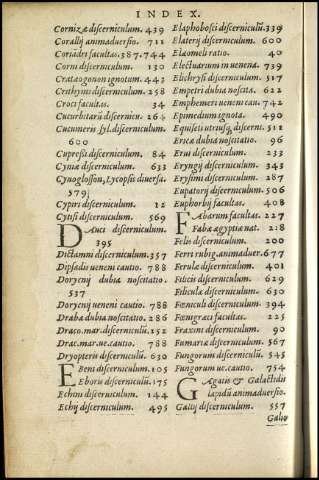 INDEX.
Cornizæ discerniculum. 439
Corallij animaduersio. 711
Coriadri facultas. 387.744
Corni discerniculum. 130
Crataogonon ignotum. 443
Crithymi discerniculum. 258
Croci facultas. 34
Cucurbitarũ discernicu. 264
Cucumeris syl. discerniculum.
600
Cupressi discerniculum. 84
Cymæ discerniculum. 633
Cynoglosson, Lycopsis diuersa.
579
Cypiri discerniculum. 12
Cytisi discerniculum. 569
DAuci discerniculum.
395
Dictamni discerniculum. 357
Dipsadis ueneni cautio. 788
Dorycnij dubia noscitatio.
537
Dorycnij ueneni cautio. 788
Draba dubia noscitatio. 286
Draco.mar. discerniculũ. 152
Drac.mar.ue.cautio. 788
Dryopteris discerniculũ. 630
EBeni discerniculum. 105
Eboris discerniculũ. 175
Echini discerniculum. 144
Echij discerniculum. 495
Elaphobosci discerniculũ. 339
Elaterij discerniculum. 600
Elaomeli ratio. 40
Electuarum in uenena. 739
Elichrysi discerniculum. 517
Empetri dubia noscita. 622
Ephemeri ueneni cau. 742
Epimedium ignota. 490
Equiseti utriusq; discerni. 511
Ericæ dubia noscitatio. 96
Erui discerniculum. 233
Eryngij discerniculum. 343
Erysimi discerniculum. 287
Eupatorij discerniculum. 506
Euphorbij facultas. 408
FAbarum facultas. 227
Faba ægyptia nat. 228
Felis discerniculum. 200
Ferri rubig. animaduer. 677
Ferulæ discerniculum. 401
Filicis discerniculum. 629
Filiculæ discerniculum. 630
Fœniculi discerniculum. 394
Fœnigraci facultas. 225
Fraxini discerniculum. 90
Fumariæ discerniculum. 567
Fungorum discerniculũ. 545
Fungorum ue.cautio. 754
GAgatis & Galactidis
lapidũ animaduersio.
Galij discerniculum. 557
Galiop